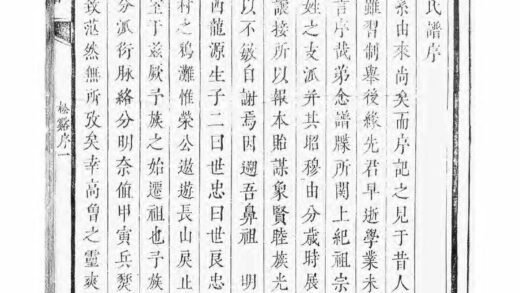 氏譜序
系由來尚矣而序記之見于昔人
雖習制舉後緣先君早逝學業未
言序哉第念譜牒所関上紀祖宗
姓之支派并其昭穆由分歲時展
讓接所以報本貽謀象賢睦族光
以不敏自謝焉因遡吾鼻祖 明
龍源生子二曰世忠曰世良忠
村之鴉灘惟榮公遨遊長山戾止
至于兹厥予族之始遷祖也予族
分派衍脉絡分明奈値甲寅兵燹
致茫然無所攷矣幸高曾之靈爽
松谿序一